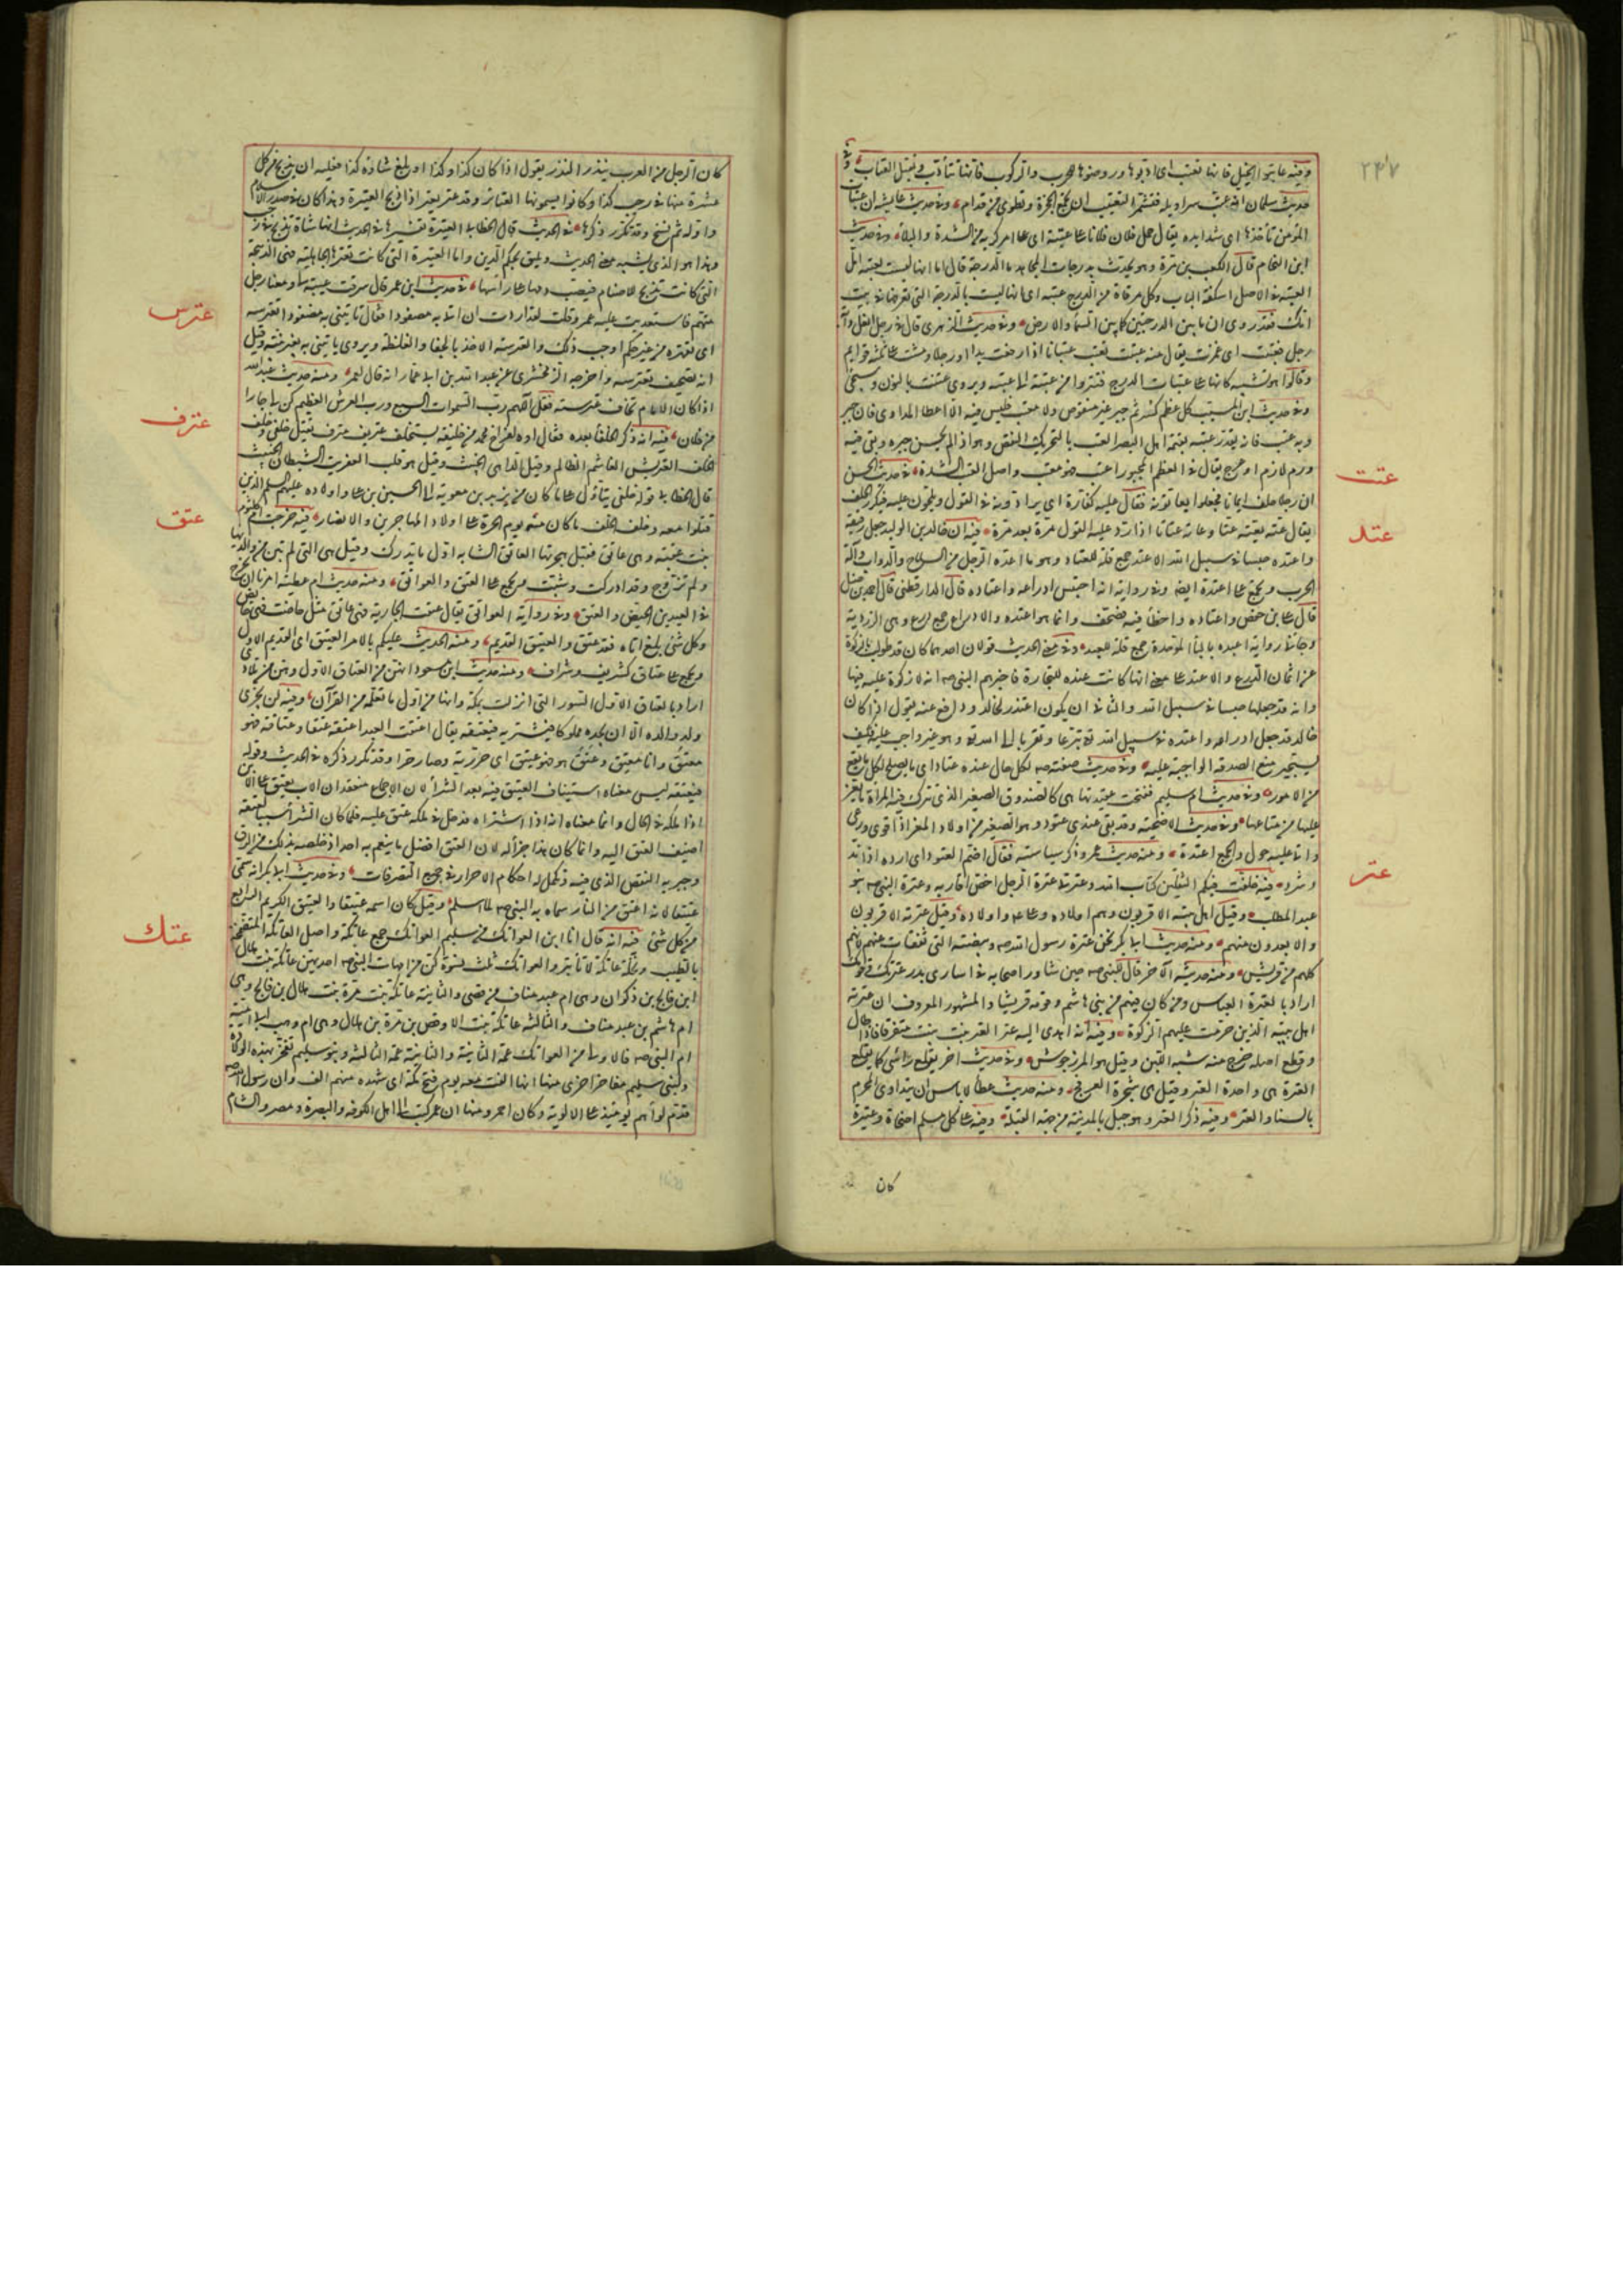 ٢٤٧
وفيه عاتبوا الخيل فانها تعتب اى ادبوها وروضوها للحرب والركوب فانها تتأدب وتقبل العتاب وفى
حديث سلمان انه عتب سراويله فتشمر التعتيب ان تجمع الحجزة وتطوى من قدام وفى حديث عايشه ان عتبات
الموت تأخذها اى شدايده يقال حمل فلان فلانا على عتبة اى على امر كريه من الشدة والبلاء وفى حديث
ابن النحام قال لكعب بن مرة وهو يحدث بدرجات المجاهد ما الدرجة قال اما انها ليست بعتبة امك
العتبة فى الاصل اسكفة الباب وكل مرقاة من الدرج عتبة اى انها ليست بالدرجة التى تعرفها فى بيت
امك فقد روى ان ما بين الدرجتين كما بين السماء والارض وفى حديث الزهرى قال فى رجل انعل دابة
رجل فعتبت اى غمزت يقال منه عتبت تعتب عتبانا اذا رفعت يدا او رجلا ومشت على ثلثة قوايم
وقالوا هو تشبيه كانها تمشى على عتبات الدرج فتنزو من عتبة الى عتبة ويروى عنتت بالنون وسيجئ
وفى حديث ابن المسيب كل عظم كسر ثم جبر غير منقوص ولا معتب فليس فيه الا اعطاء المداوى فان جبر
وبه عتب فانه يقدر عتبه بقيمة اهل البصر العتب بالتحريك النقص وهو اذا لم يحسن جبره وبقى فيه
ورم لازم او عرج يقال فى العظم المجبور اعتب فهو معتب واصل العتب الشدة فى حديث الحسن
عتت
ان رجلا حلف ايمانا فجعلوا يعاتونه فقال عليه كفارة اى يرادونه فى القول ويلحون عليه فيكرر الحلف
يقال عته يعته عتا وعاته عتاتا اذا رد عليه القول مرة بعد مرة فيه ان خالد بن الوليد جعل رقيقه
عتد
واعتده حبسا فى سبيل الله الاعتد جمع قلة للعتاد وهو ما اعده الرجل من السلاح والدواب وآلة
الحرب وتجمع على اعتدة ايضا وفى رواية انه احتبس ادراعه واعتاده قال الدارقطنى قال احمد بن حنبل
قال على بن حفص واعتاده واخطأ فيه وصحف وانما هو اعتده والادراع جمع درع وهى الزردية
وجاء فى رواية اعبده بالباء الموحدة جمع قلة للعبد وفى معنى الحديث قولان احدهما كان قد طولب بالزكوة
عن اثمان الدروع والاعتد على معنى انها كانت عنده للتجارة فاخبرهم النبى صه انه لا زكوة عليه فيها
وانه قد جعلها حبسا فى سبيل الله والثانى ان يكون اعتذر لخالد ودافع عنه يقول اذا كان
خالد قد جعل ادراعه واعتده فى سبيل الله تبرعا وتقربا الى الله تع وهو غير واجب عليه فكيف
يستجيز منع الصدقة الواجبة عليه وفى حديث صفته صه لكل حال عنده عتاد اى ما يصلح لكل ما يقع
من الامور وفى حديث ام سليم ففتحت عتيدتها هى كالصندوق الصغير الذى تترك فيه المرأة ما يعز
عليها من متاعها وفى حديث الاضحية وقد بقى عندى عتود وهو الصغير من اولاد المعز اذا قوى ورعى
واتى عليه حول والجمع اعتدة ومنه حديث عمر وذكر سياسته فقال اضم العتود اى ارده اذا ند
وشرد فيه خلفت فيكم الثقلين كتاب الله وعترتى عترة الرجل اخص اقاربه وعترة النبى صه بنو
عتر
عبد المطلب وقيل اهل بيته الاقربون وهم اولاده وعلى واولاده وقيل عترته الاقربون
والابعدون منهم ومنه حديث ابى بكر نحن عترة رسول الله صه وبيضته التى تفقأت عنهم لانهم
كلهم من قريش ومنه حديثه الآخر قال للنبى صه حين شاور اصحابه فى اسارى بدر عترتك وقومك
اراد بالعترة العباس ومن كان فيهم من بنى هاشم وقومه قريشا والمشهور المعروف ان عترته
اهل بيته الذين حرمت عليهم الزكوة وفيه انه اهدى اليه عتر العتر نبت ينبت متفرقا فاذا طال
وقطع اصله خرج منه شبه اللبن وقيل هو المرزجوش وفى حديث آخر يفلغ رأسى كما يفلغ
العترة هى واحدة العتر وقيل هى شجرة العرفج ومنه حديث عطا لا بأس ان يتداوى المحرم
بالسنا والعتر وفيه ذكر العتر وهو جبل بالمدينة من جهة القبلة وفيه على كل مسلم اضحاة وعتيرة
كان
كان الرجل من العرب ينذر النذر يقول اذا كان كذا وكذا او بلغ شاؤه كذا فعليه ان يذبح من كل
عشرة منها فى رجب كذا وكانوا يسمونها العتاير وقد عتر يعتر اذا ذبح العتيرة وهذا كان فى صدر الاسلام
واوله ثم نسخ وقد تكرر ذكرها فى الحديث قال الخطابى العتيرة تفسيرها فى الحديث انها شاة تذبح فى رجب
وهذا هو الذى يشبه معنى الحديث ويليق بحكم الدين واما العتيرة التى كانت تعترها الجاهلية فهى الذبيحة
التى كانت تذبح للاصنام فيصب دمها على رأسها فى حديث ابن عمر قال سرقت عيبة لى ومعنا رجل
عترس
متهم فاستعديت عليه عمر وقلت لقد اردت ان آتى به مصفودا فقال تأتينى به مصفودا تعترسه
اى تقهره من غير حكم اوجب ذلك والعترسة الاخذ بالجفا والغلظة ويروى تأتينى به بغير بينة وقيل
انه تصحيف تعترسه واخرجه الزمخشرى عن عبد الله بن ابى عمار انه قال لعمر ومنه حديث عبد الله
اذا كان الامام تخاف عترسته فقل اللهم رب السموات السبع ورب العرش العظيم كن لى جارا
من فلان فيه انه ذكر الخلفا بعده فقال اوه لفراخ محمد من خليفة يستخلف عتريف مترف يقتل خلفى وخلف
عترف
الخلف العتريف الغاشم الظالم وقيل الداهى الخبيث وقيل هو قلب العفريت الشيطان الخبيث
قال الخطابى قوله خلفى يتأول على ما كان من يزيد بن معوية الى الحسين بن على واولاده عليهم السلم الذين
قتلوا معه وخلف الخلف ما كان منه يوم الحرة على اولاد المهاجرين والانصار فيه خرجت ام كلثوم
عتق
بنت عقبة وهى عاتق فقبل هجرتها العاتق الشابة اول ما تدرك وقيل هى التى لم تبن من والديها
ولم تزوج وقد ادركت وشبت وتجمع على العتق والعواتق ومنه حديث ام عطية امرنا ان نخرج
فى العيدين الحيض والعتق وفى رواية العواتق يقال عتقت الجارية فهى عاتق مثل حاضت فهى حائض
وكل شئ بلغ اناه فقد عتق والعتيق القديم ومنه الحديث عليكم بالامر العتيق اى القديم الاول
ويجمع على عتاق كشريف وشراف ومنه حديث ابن مسعود انهن من العتاق الاول وهن من تلادى
اراد بالعتاق الاول السور التى انزلت بمكة وانها من اول ما تعلمه من القرآن وفيه لن يجزى
ولد والده الا ان يجده مملوكا فيشتريه فيعتقه يقال اعتقت العبد اعتقه عتقا وعتاقة فهو
معتق وانا معتق وعتق هو فهو عتيق اى حررته وصار حرا وقد تكرر ذكره فى الحديث وقوله
فيعتقه ليس معناه استيناف العتق فيه بعد الشراء لان الاجماع منعقد ان الاب يعتق على الابن
اذا ملكه فى الحال وانما معناه انه اذا اشتراه فدخل فى ملكه عتق عليه فلما كان الشراء سببا لعتقه
اضيف العتق اليه وانما كان هذا جزاء له لان العتق افضل ما ينعم به احد اذ خلصه بذلك من الرق
وجبر به النقص الذى فيه وتكمل له احكام الاحرار فى جميع التصرفات وفى حديث ابى بكر انه سمى
عتيقا لانه اعتق من النار سماه به النبى صه لما اسلم وقيل كان اسمه عتيقا والعتيق الكريم الرايع
من كل شئ فيه انه قال انا ابن العواتك من سليم العواتك جمع عاتكة واصل العاتكة المتضمخة
عتك
بالطيب ونخلة عاتكة لا تأتبر والعواتك ثلث نسوة كن من امهات النبى صه احديهن عاتكة بنت هلال
ابن فالج بن ذكوان وهى ام عبد مناف بن قصى والثانية عاتكة بنت مرة بنت هلال بن فالج وهى
ام هاشم بن عبد مناف والثالثة عاتكة بنت الاوقص بن مرة بن هلال وهى ام وهب ابى آمنة
ام النبى صه فالاولى من العواتك عمة الثانية والثانية عمة الثالثة وبنو سليم تفخر بهذه الولادة
ولبنى سليم مفاخر اخرى منها انها الفت معه يوم فتح مكة اى شهده منهم الف وان رسول الله صه
قدم لواءهم يومئذ على الالوية وكان احمر ومنها ان عمر كتب الى اهل الكوفة والبصرة ومصر والشام